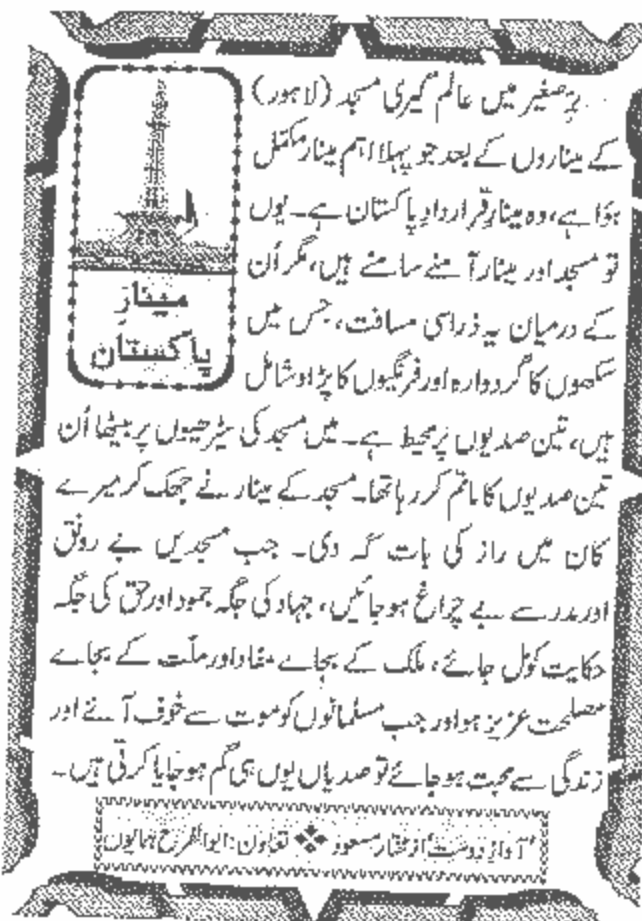 برِصغیر میں عالم گیری مسجد (لاہور)
کے میناروں کے بعد جو پہلا اہم مینار مکمل
ہؤا ہے، وہ مینارِ قراردادِ پاکستان ہے۔ یوں
تو مسجد اور مینار آمنے سامنے ہیں، مگر اُن
کے درمیان یہ ذراسی مسافت، جس میں
سکھوں کا گردوارہ اور فرنگیوں کا پڑاو شامل
ہیں، تین صدیوں پر محیط ہے۔ میں مسجد کی سیڑھیوں پر بیٹھا اُن
تین صدیوں کا ماتم کر رہا تھا۔ مسجد کے مینار نے جھک کر میرے
کان میں راز کی بات کہ دی۔ جب مسجدیں بے رونق
اور مدرسے بے چراغ ہوجائیں، جہاد کی جگہ جمود اور حق کی جگہ
حکایت کو مل جائے، ملک کے بجاے مفاد اور ملّت کے بجاے
مصلحت عزیز ہو اور جب مسلمانوں کو موت سے خوف آنے اور
زندگی سے محبت ہوجائے تو صدیاں یوں ہی گم ہوجایا کرتی ہیں۔
مینارِ
پاکستان
'آوازِ دوست' از مختار مسعود ❖ تعاون: ابوالفرح ہمایوں